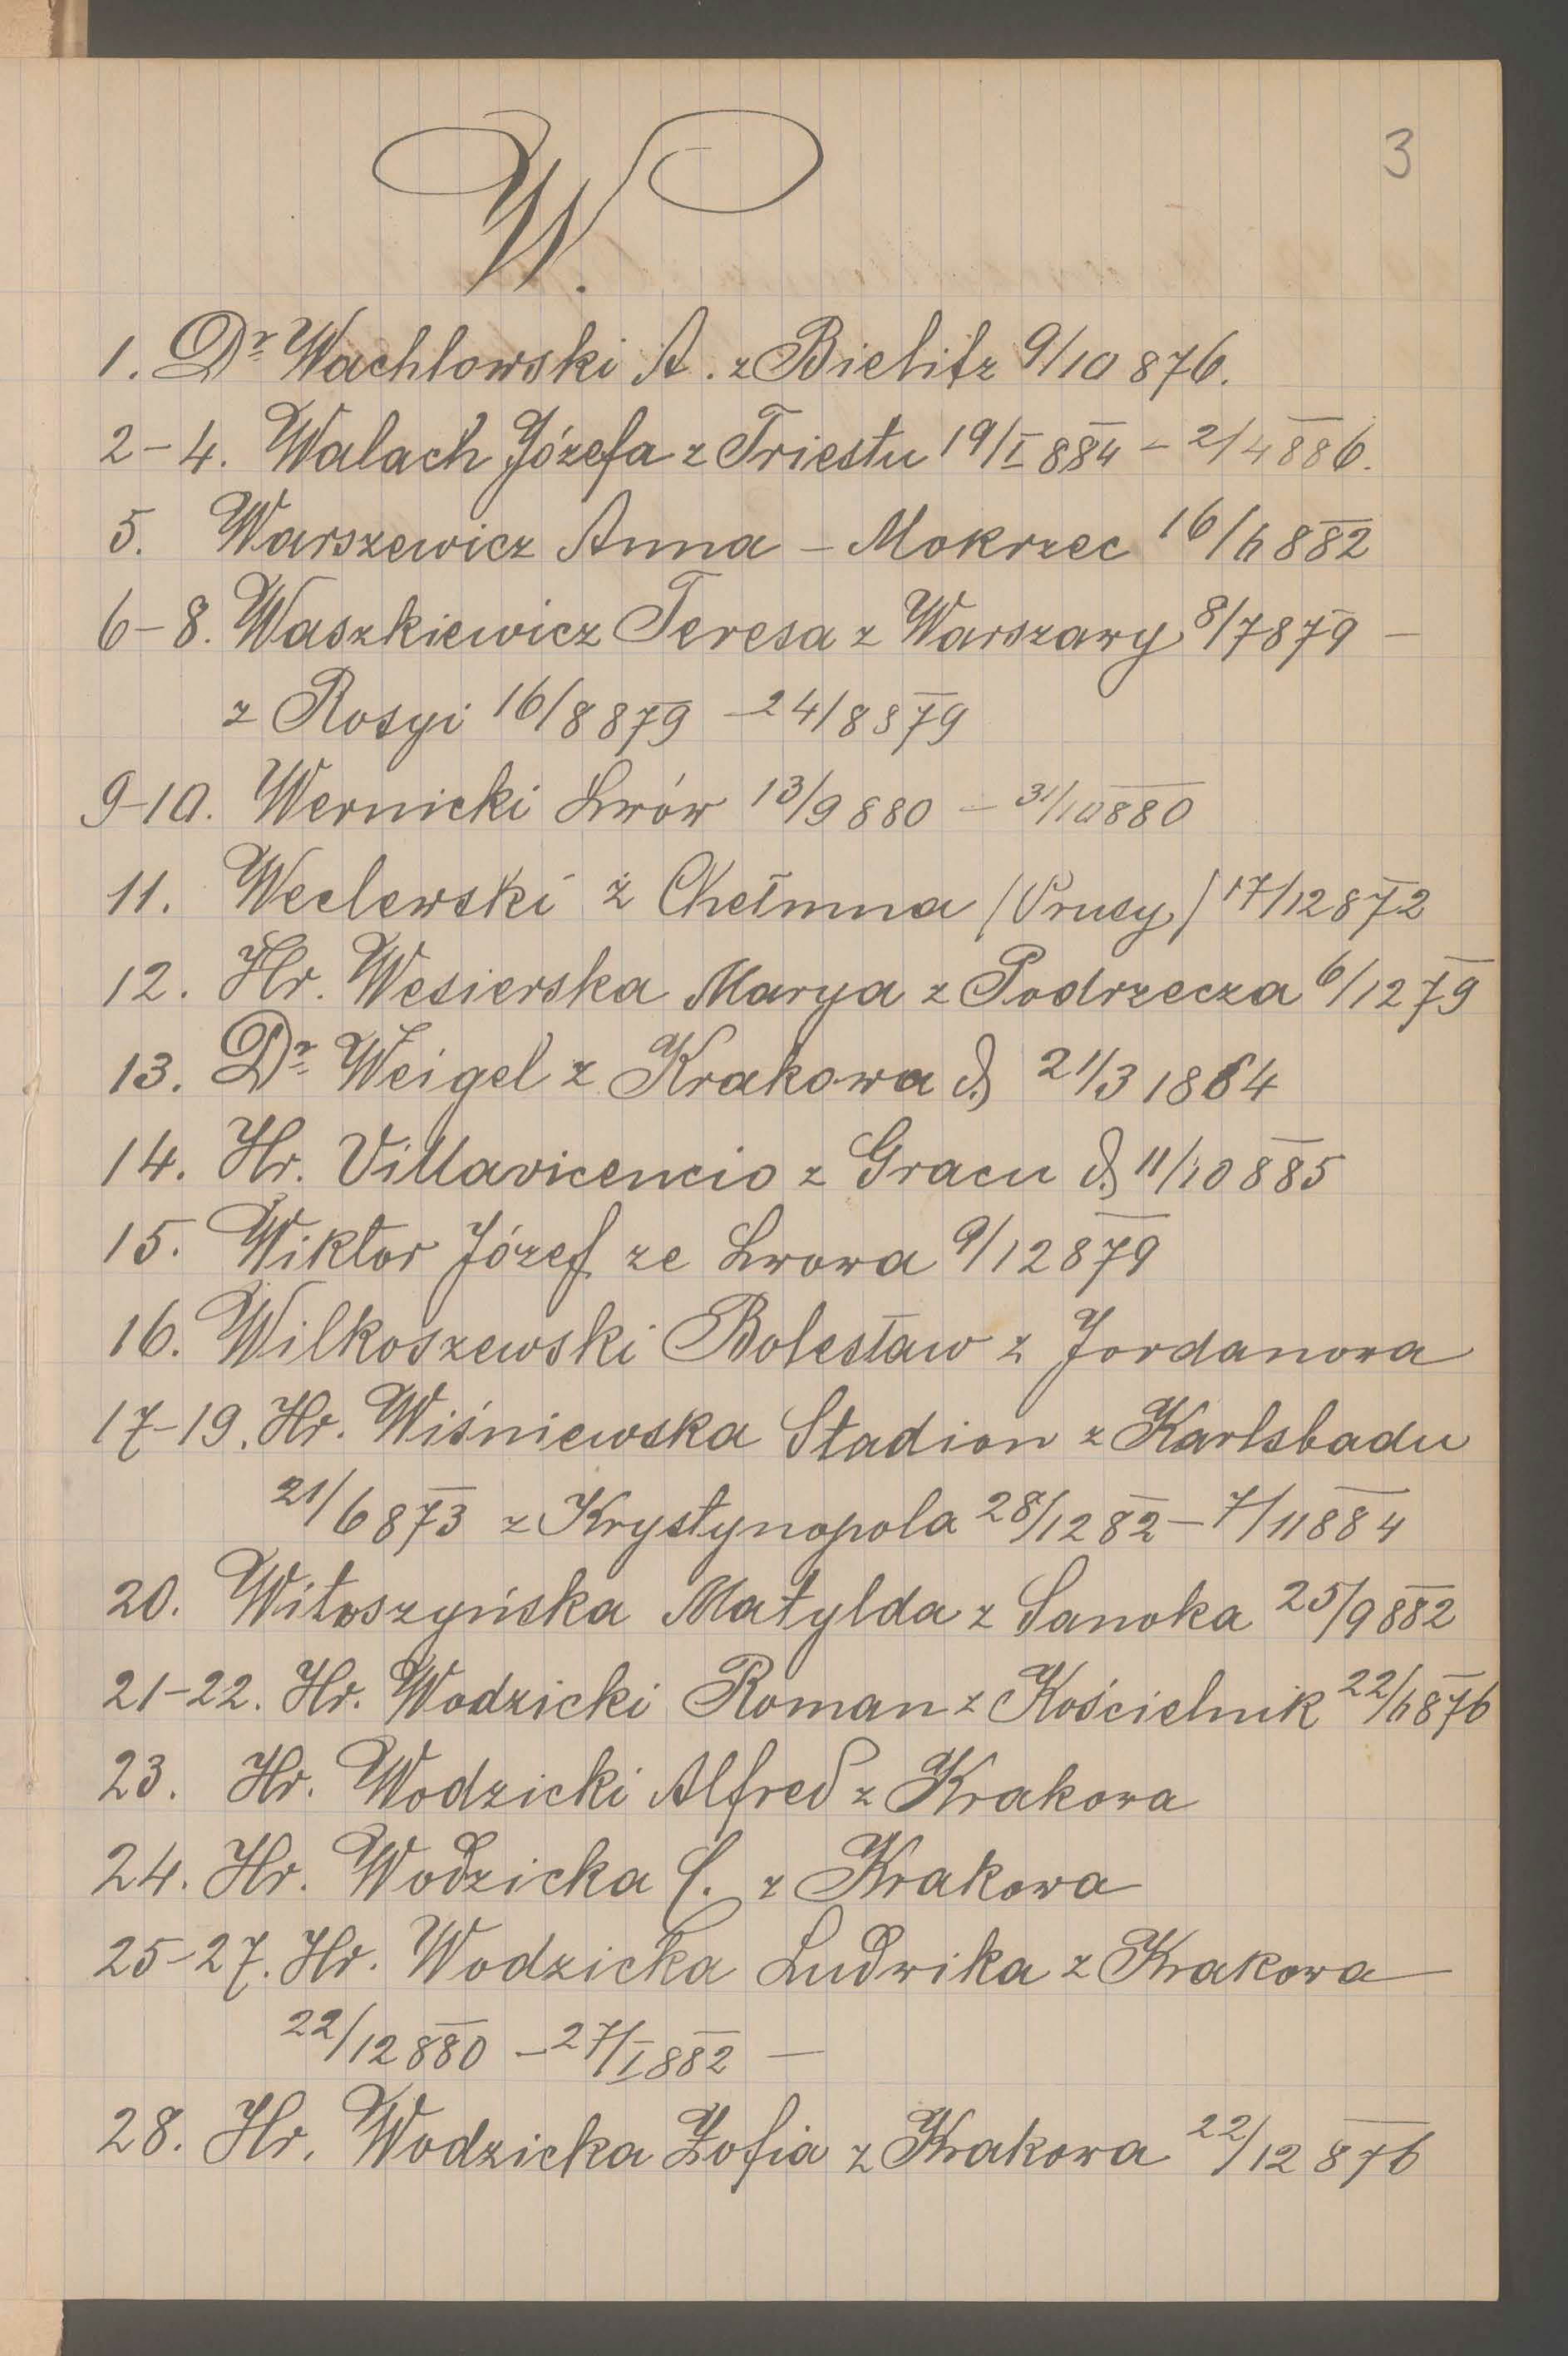 3
W.
1. Dr Wachlowski A. z Bielitz 9/10 876.
2-4. Walach Józefa z Triestu 19/I 884 - 2/4 886.
5. Warszewicz Anna - Mokrzec 16/6 882
6-8. Waszkiewicz Teresa z Warszawy 8/7 879 -
z Rosyi 16/8 879 - 24/8 879
9-10. Wernicki Lwów 13/9 880 - 31/10 880
11. Weclewski z Chełmna /Prusy/ 17/12 872
12. Hr. Wesierska Marya z Podrzecza 6/12 79
13. Dr Weigel z Krakowa d. 21/3 1864
14. Hr. Villavicencio z Gracu d. 11/10 885
15. Wiktor Józef ze Lwowa 9/12 879
16. Wilkoszewski Bolesław z Jordanowa
17-19. Hr. Wiśniewska Stadion z Karlsbadu
21/6 873 z Krystynopola 28/12 82 - 7/11 884
20. Witoszyńska Matylda z Sanoka 25/9 882
21-22. Hr. Wodzicki Roman z Kościelnik 22/6 876
23. Hr. Wodzicki Alfred z Krakowa
24. Hr. Wodzicka C. z Krakowa
25-27. Hr. Wodzicka Ludwika z Krakowa
22/12 880 - 27/I 882 -
28. Hr. Wodzicka Zofia z Krakowa 22/12 876